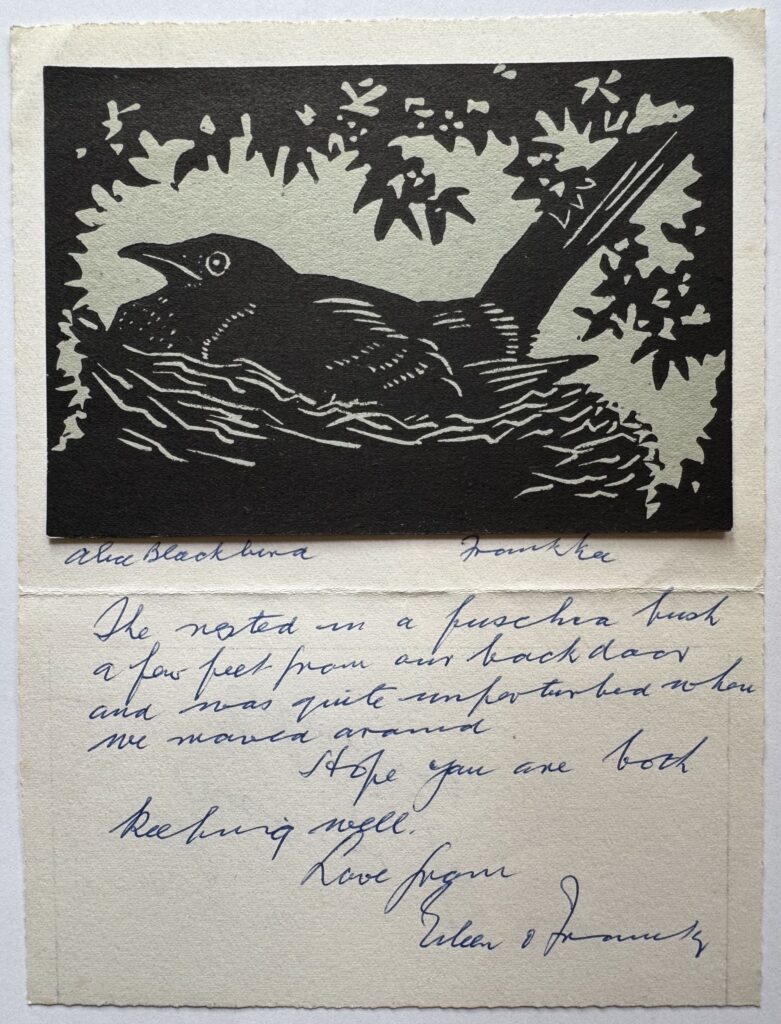 Alice Blackbird Frank Kee
She nested in a fuschia bush
a few feet from our back door
and was quite unperturbed when
we moved around
Hope you are both
keeping well.
Love from
Eileen & Frank